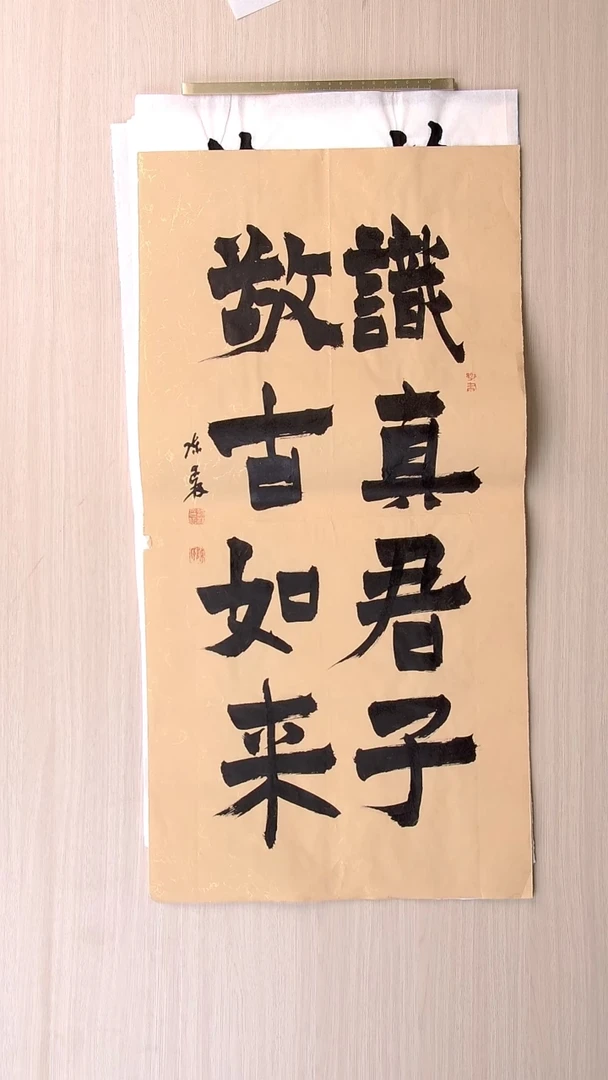 識真君子
敬古如来